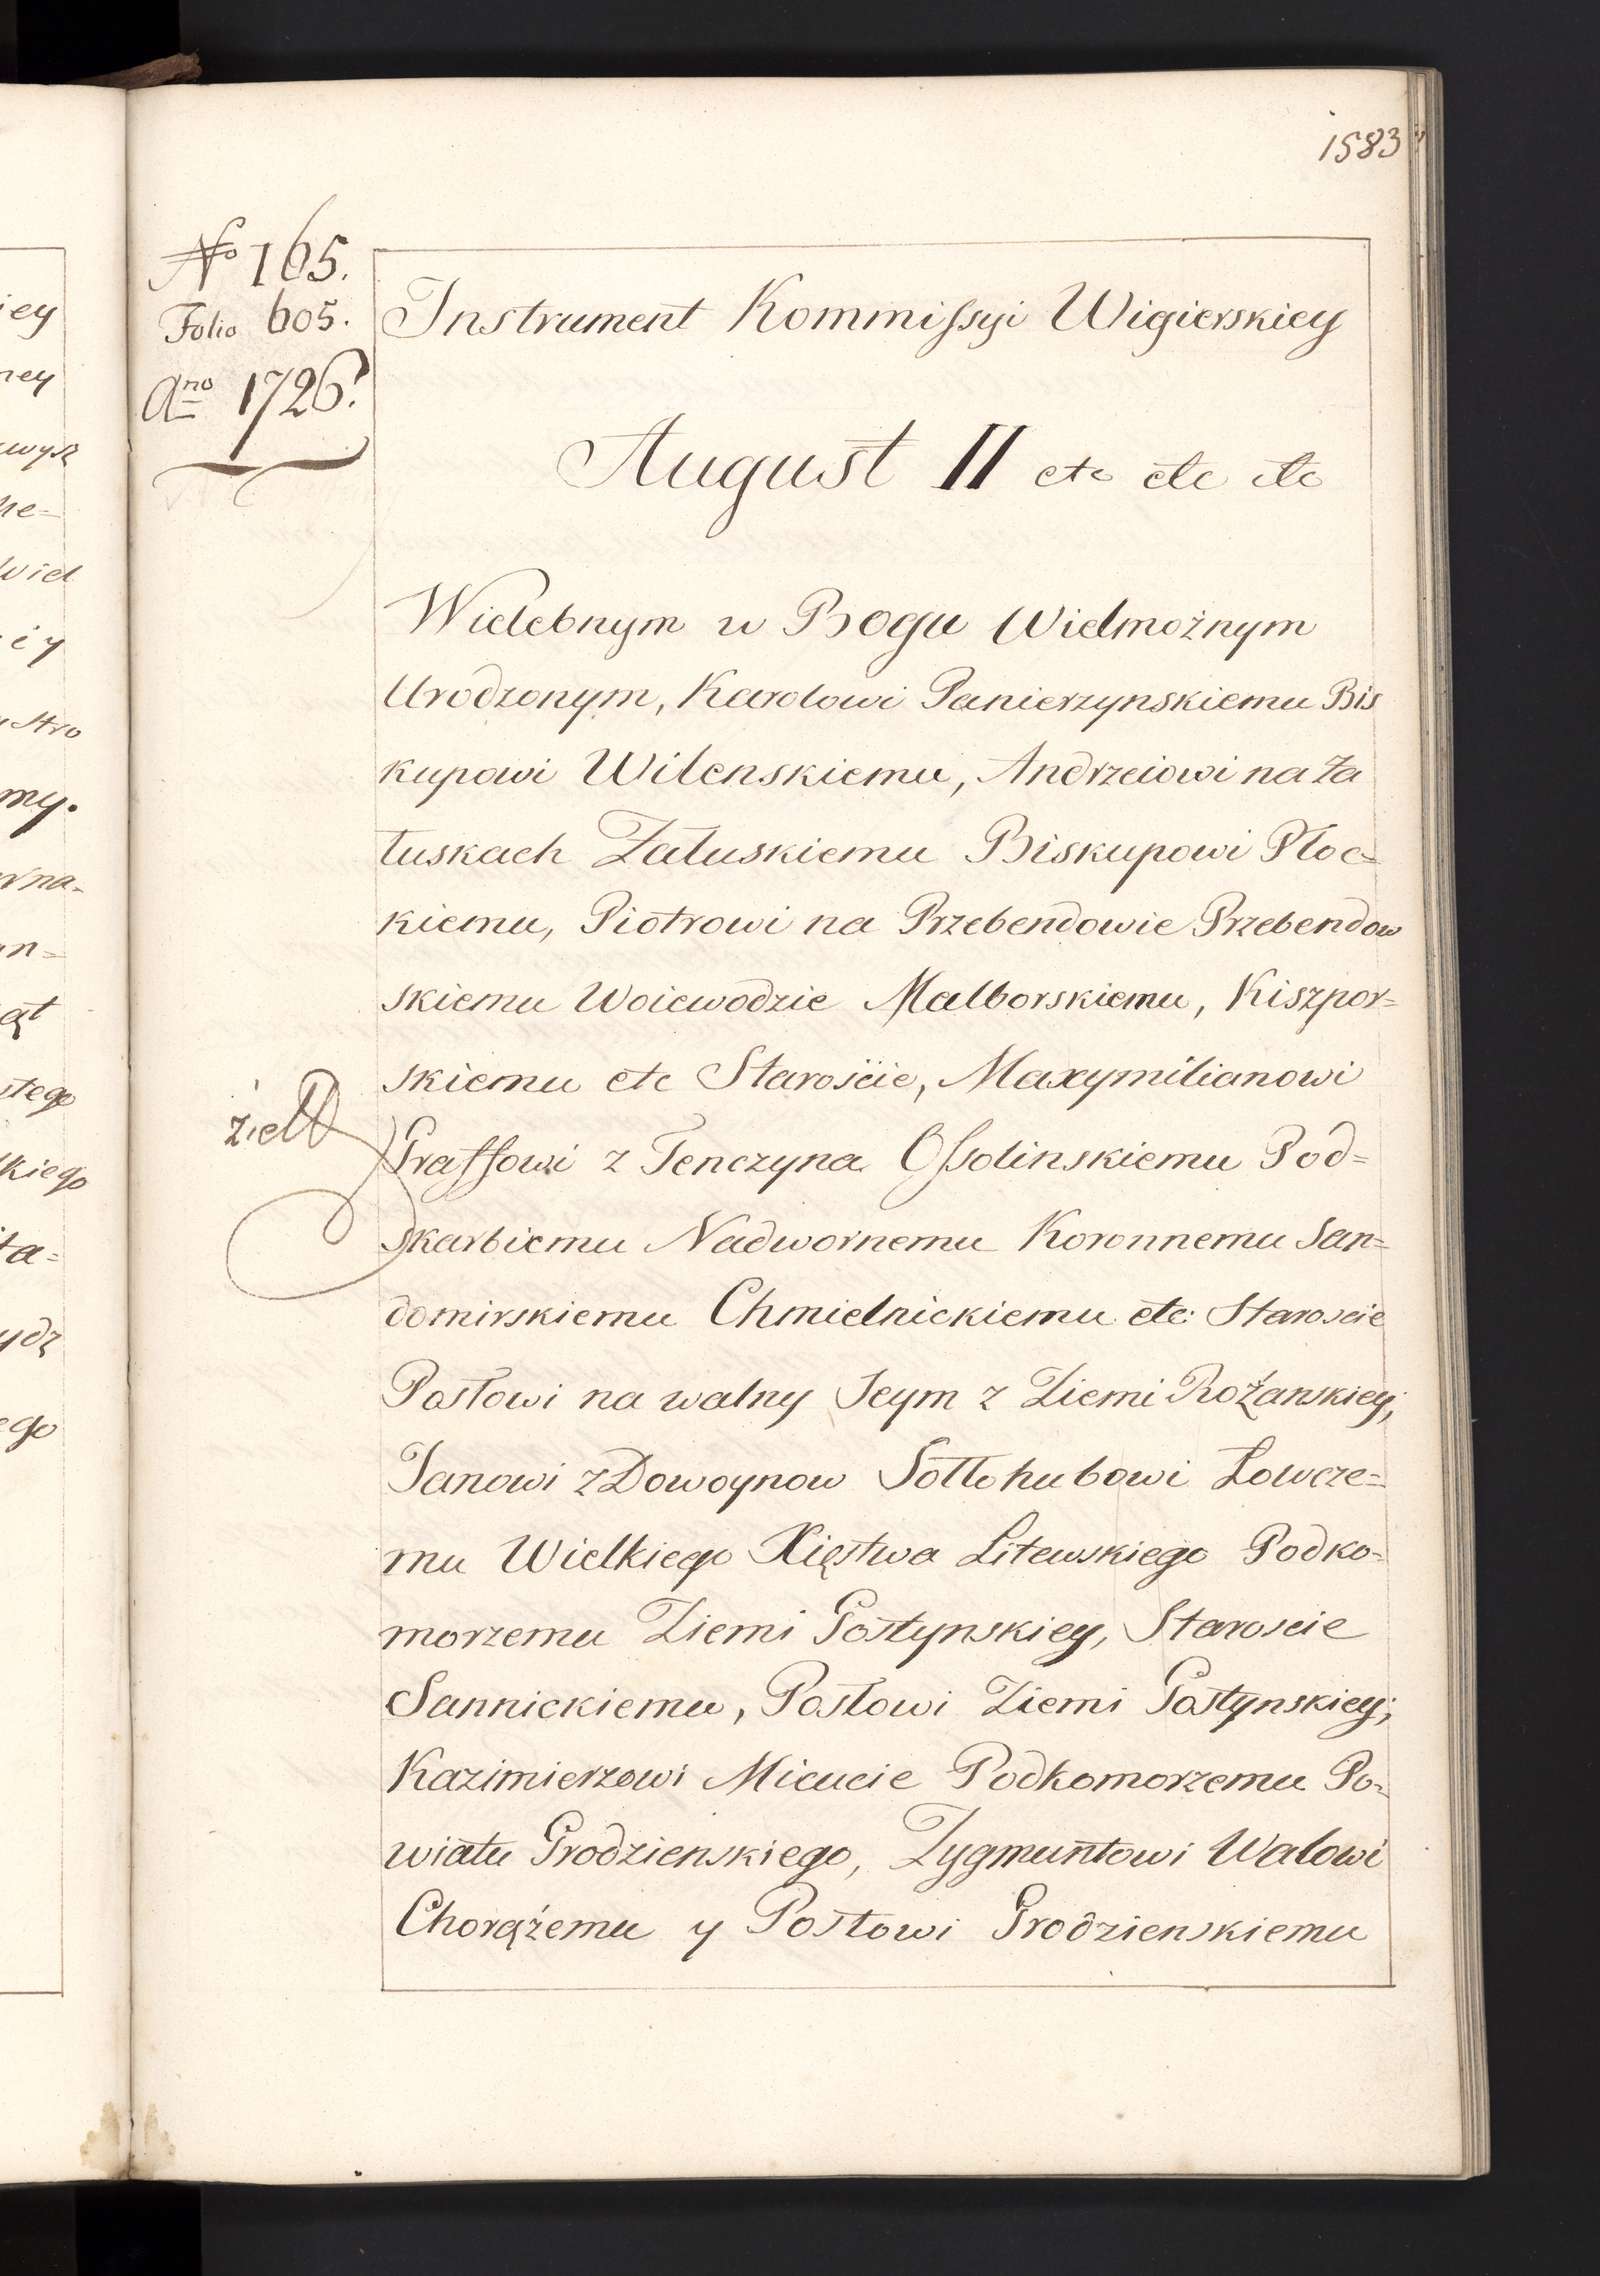 1583
No 165.
Folio 605.
Ano 1726.
Instrument Kommissyi Wigierskiey
August II etc etc etc
Wielebnym w Bogu Wielmożnym
Urodzonym, Karolowi Panierzynskiemu Bis
kupowi Wilenskiemu, Andrzeiowi na Za
łuskach Załuskiemu Biskupowi Płoc=
kiemu, Piotrowi na Przebendowie Przebendow
skiemu Woiewodzie Malborskiemu, Kiszpor=
skiemu etc Starośćie, Maxymilianowi
Graffowi z Tenczyna Ossolinskiemu Pod=
skarbiemu Nadwornemu Koronnemu San=
domirskiemu Chmielnickiemu etc: Staroscie
Posłowi na walny Seym z Ziemi Rożanskiey,
Janowi z Dowoynow Sołłohubowi Łowcze=
mu Wielkiego Xięstwa Litewskiego Podko=
morzemu Ziemi Gostynskiey, Staroscie
Sannickiemu, Posłowi Ziemi Gostynskiey;
Kazimierzowi Micucie Podkomorzemu Po=
wiatu Grodzienskiego, Zygmuntowi Walowi
Chorążemu y Posłowi Grodzienskiemu
iey
ney
wysz
ne=
wiel
iy
stro
my.
na=
n=
ąt
stego
kiego
ta=
ydz
ego